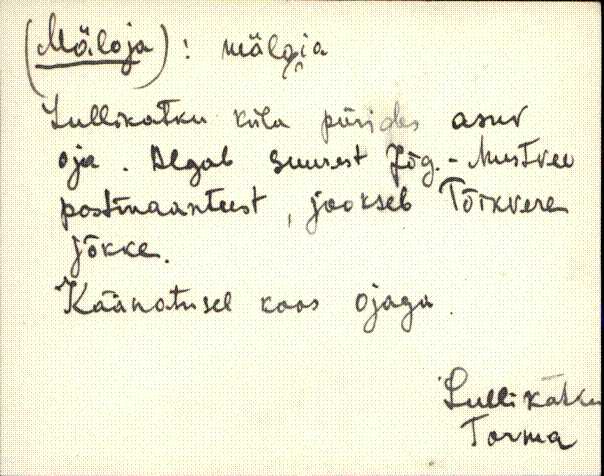 (Mäloja): mälo̭ia
Lullikatku küla piirides asuv
oja. Algab suurest Jõg.-Mustvee
postimaanteest, jookseb Tõikvere
jõkke.
Käänatusel koos ojaga.
Lullikatku
Torma